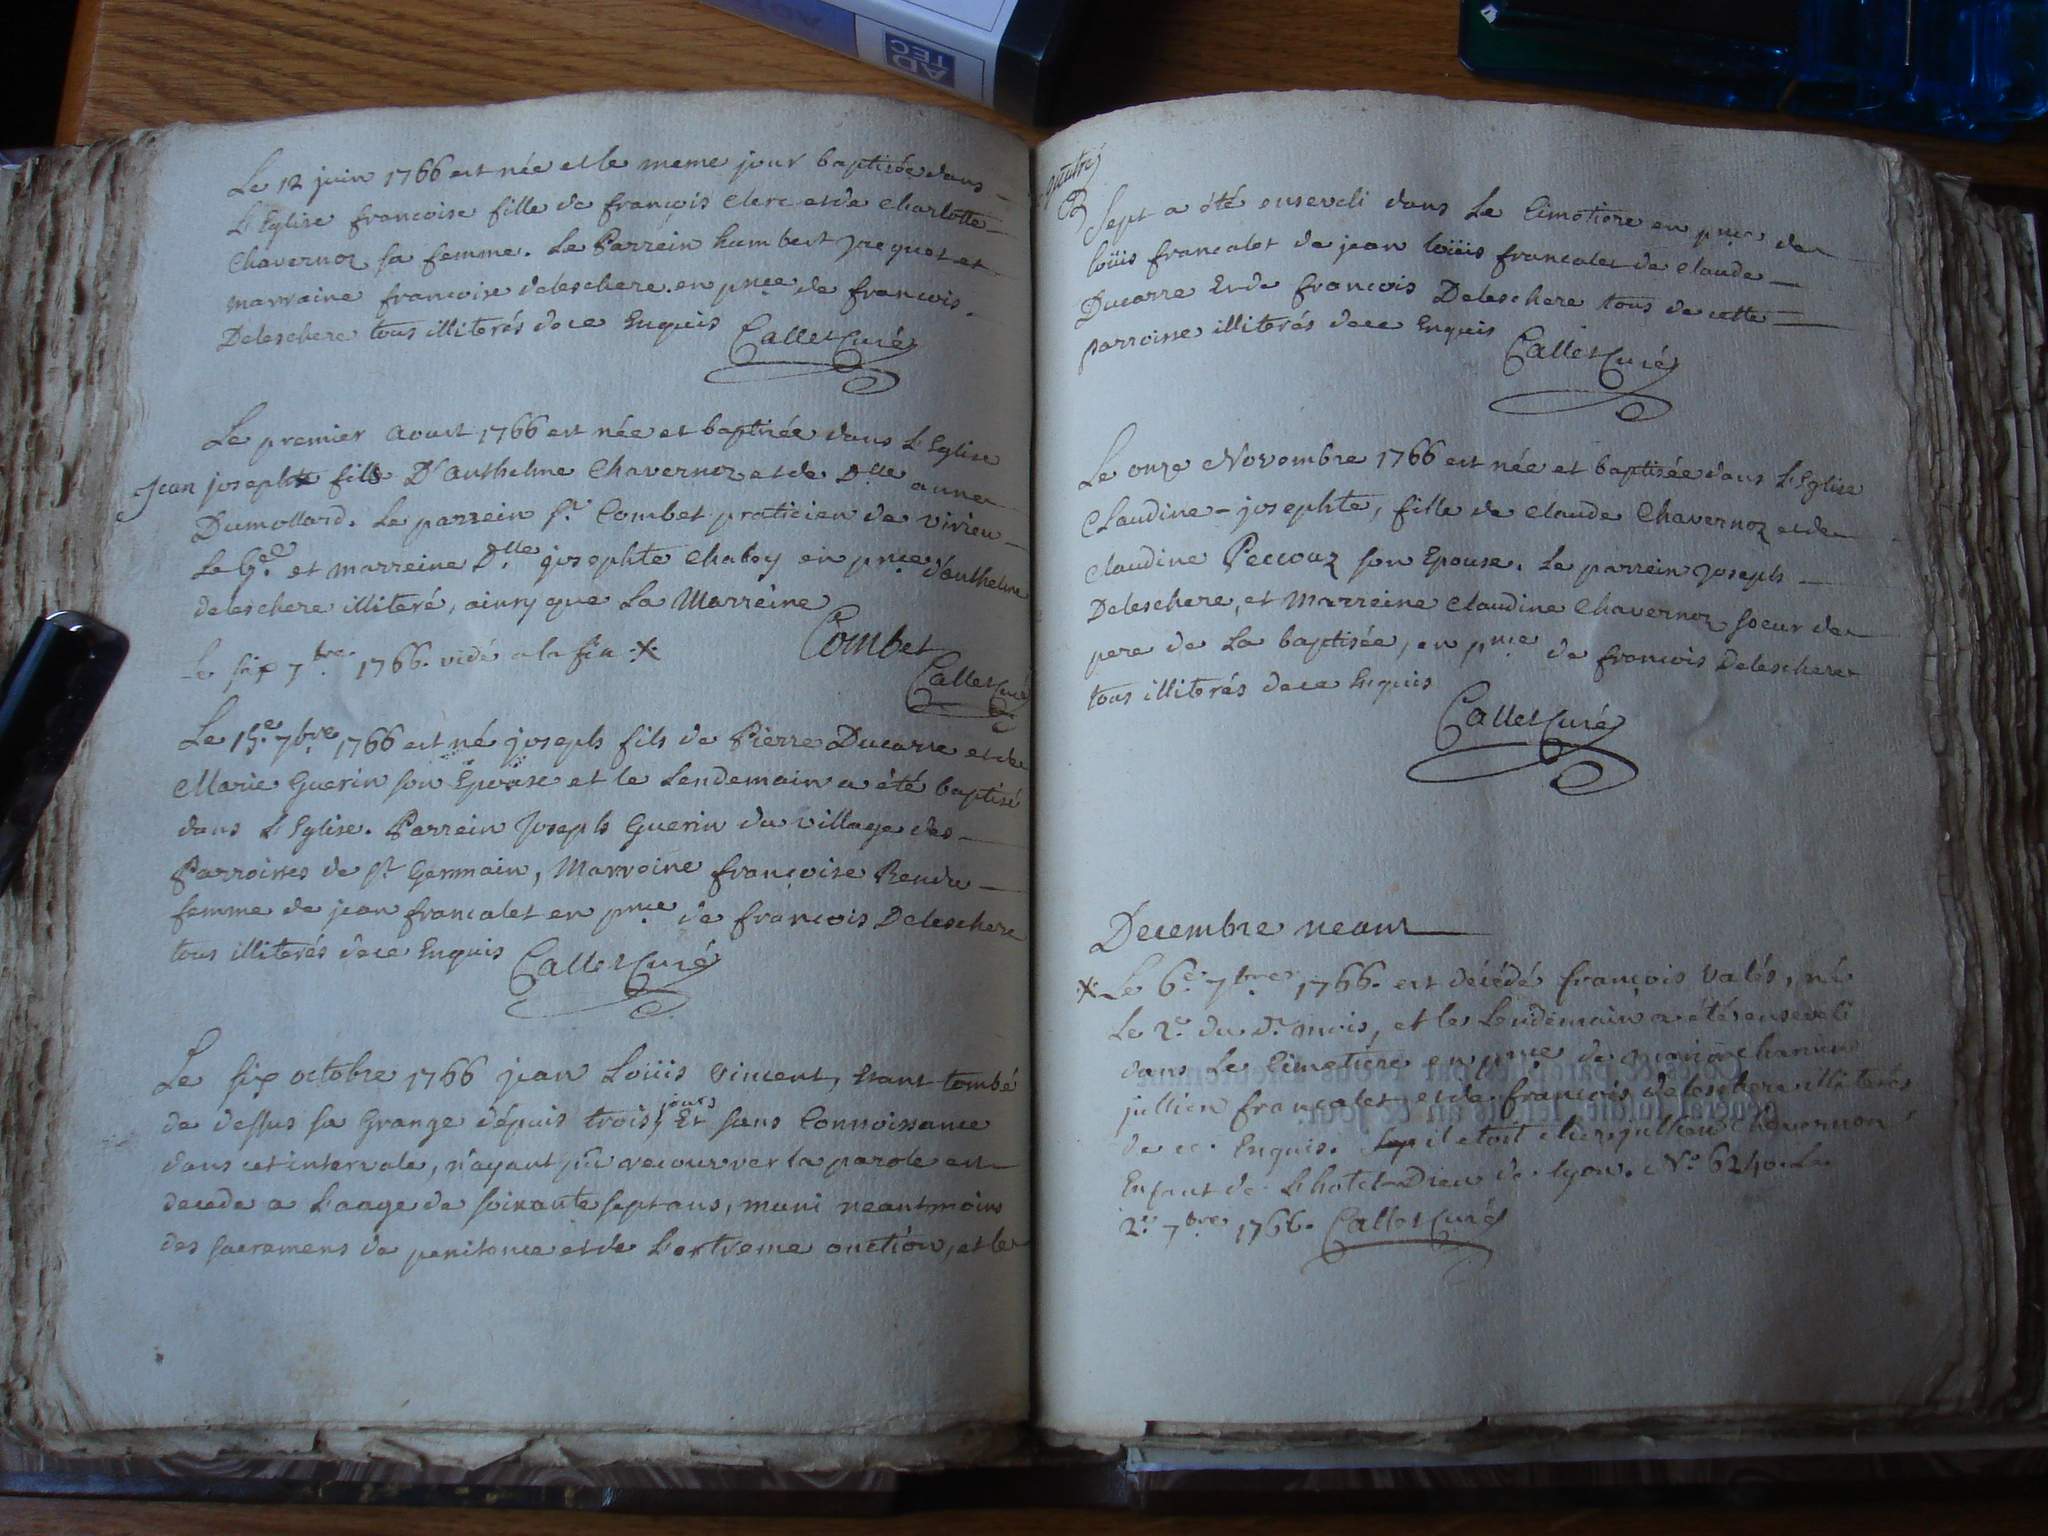 AD
TEC
Le 12 juin 1766 est née et le meme jour baptisée dans
L'Eglise francoise fille de françois Clerc et de Charlotte
Chavernoz sa femme. Le Parrein humbert jrequet et
marraine francoise deleschere en pnce de francois
Deleschere tous illiterés de ce Enquis Callet Curé
Le premier Aoust 1766 est née et baptisée dans L'Eglise
Jean josephte fils D'Anthelme Chavernoz et de Dlle anne
Dumollard. Le parrein Sr Combet praticien de virieu
Le Gd et marreine Dlle josephte Chaboy en pnce d'anthelme
deleschere illiteré, ainsy que La Marreine
Combet
Le six 7bre 1766. vidé a la fin
Callet Curé
Le 15e 7bre 1766 est né joseph fils de Pierre Ducarre et de
Marie Guerin son Epouse et le Lendemain a été baptisé
dans L'Eglise. Parrein Joseph Guerin du village des
Parroisses de St Germain, Marroine françoise Rendu
femme de jean francalet en pnce de françois Deleschere
tous illiterés de ce Enquis Callet Curé
Le six octobre 1766 jean Loüis vincent, Etant tombé
de dessus sa Grange dépuis trois jours Et sans Connoissance
dans cet intervale, n'ayant pû recouvrer la parole est
decede a L'aage de soixante sept ans, muni neantmoins
des sacremens de penitence et de L'extreme onction, et le
Sept a été enseveli dans Le Cimetiere en pnce de
loüis francalet de jean loüis francalet de Claude
Ducarre Et de francois Deleschere tous de cette
parroisse illiterés de ce Enquis Callet Curé
Le onze Novembre 1766 est née et baptisée dans L'Eglise
Claudine-josephte, fille de Claude Chavernoz et de
Claudine Peccouz son Epouse. Le parrein Joseph
Deleschere, et Marreine Claudine Chavernoz soeur de
pere de La baptisée, en pnce de francois Deleschere
tous illiterés de ce Enquis
Callet Curé
Decembre neant
Le 6e 7bre 1766. est décédé françois valés, né
Le 2e du dt mois, et le Lendemain a été enseveli
dans Le Cimetiere en pnce de
jullien francalet et de francois deleschere illiterés
de ce Enquis. il etoit chez jullien Chavernoz
Enfant de L'hotel-Dieu de lyon. No 6240. Le
2e 7bre 1766. Callet Curé